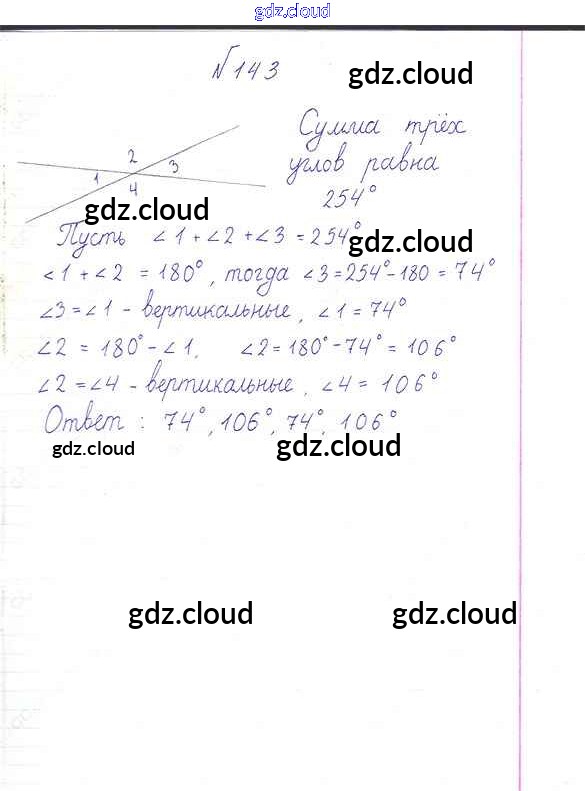 gdz.cloud
№143
gdz.cloud
2
1
3
4
Сумма трёх
углов равна
254°
gdz.cloud
Пусть ∠1+∠2+∠3=254°
gdz.cloud
∠1+∠2 = 180°, тогда ∠3=254°-180=74°
∠3=∠1 - вертикальные, ∠1=74°
∠2 = 180°-∠1, ∠2=180°-74°=106°
∠2=∠4 - вертикальные, ∠4= 106°
Ответ: 74°, 106°, 74°, 106°
gdz.cloud
gdz.cloud
gdz.cloud
gdz.cloud